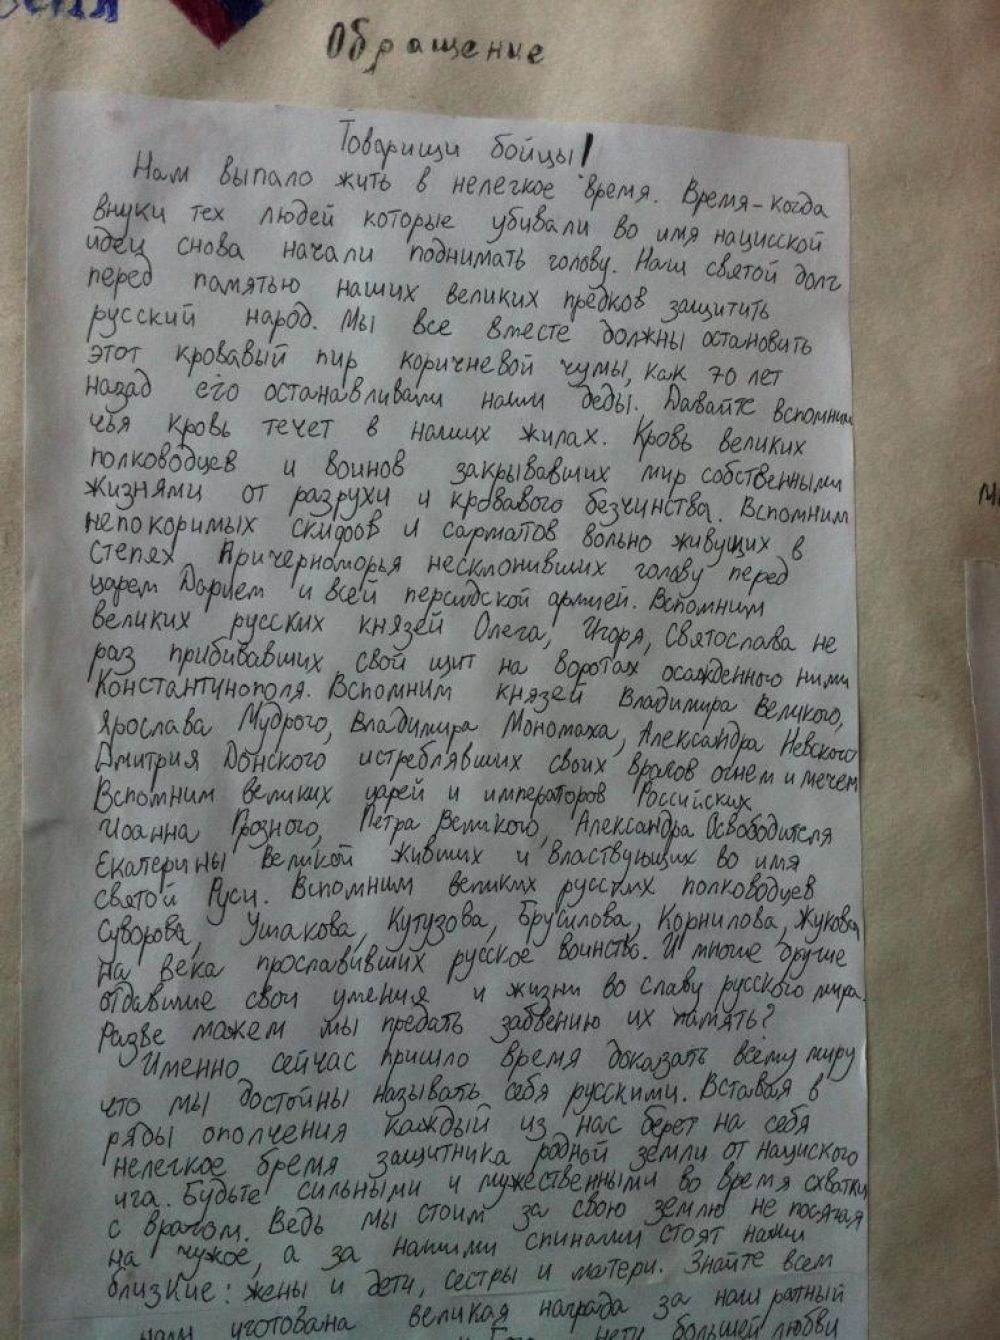 Обращение
Товарищи бойцы!
Нам выпало жить в нелегкое время. Время-когда
внуки тех людей которые убивали во имя нацисской
идеи снова начали поднимать голову. Наш святой долг
перед памятью наших великих предков защитить
русский народ. Мы все вместе должны остановить
этот кровавый пир коричневой чумы, как 70 лет
назад его останавливали наши деды. Давайте вспомним
чья кровь течет в наших жилах. Кровь великих
полководцев и воинов закрывавших мир собственными
жизнями от разрухи и кровавого безчинства. Вспомним
непокоримых скифов и сарматов вольно живущих в
степях Причерноморья несклонивших голову перед
царем Дарием и всей персидской армией. Вспомним
великих русских князей Олега, Игоря, Святослава не
раз прибивавших свой щит на воротах осажденного ними
Константинополя. Вспомним князей Владимира Великого,
Ярослава Мудрого, Владимира Мономаха, Александра Невского
Дмитрия Донского истреблявших своих врагов огнем и мечем
Вспомним великих царей и императоров Российских
Иоанна Грозного, Петра Великого, Александра Освободителя
Екатерины Великой живших и властвующих во имя
святой Руси. Вспомним великих русских полководцев
Суворова, Ушакова, Кутузова, Брусилова, Корнилова, Жукова
на века прославивших русское воинство. И многие другие
отдавшие свои умения и жизни во славу русского мира.
Разве можем мы предать забвению их память?
Именно сейчас пришло время доказать всему миру
что мы достойны называть себя русскими. Вставая в
ряды ополчения каждый из нас берет на себя
нелегкое бремя защитника родной земли от нациского
ига. Будьте сильными и мужественными во время схватки
с врагом. Ведь мы стоим за свою землю не посягая
на чужое, а за нашими спинами стоят наши
близкие: жены и дети, сестры и матери. Знайте всем
нам уготована великая награда за наш ратный
нету большей любви